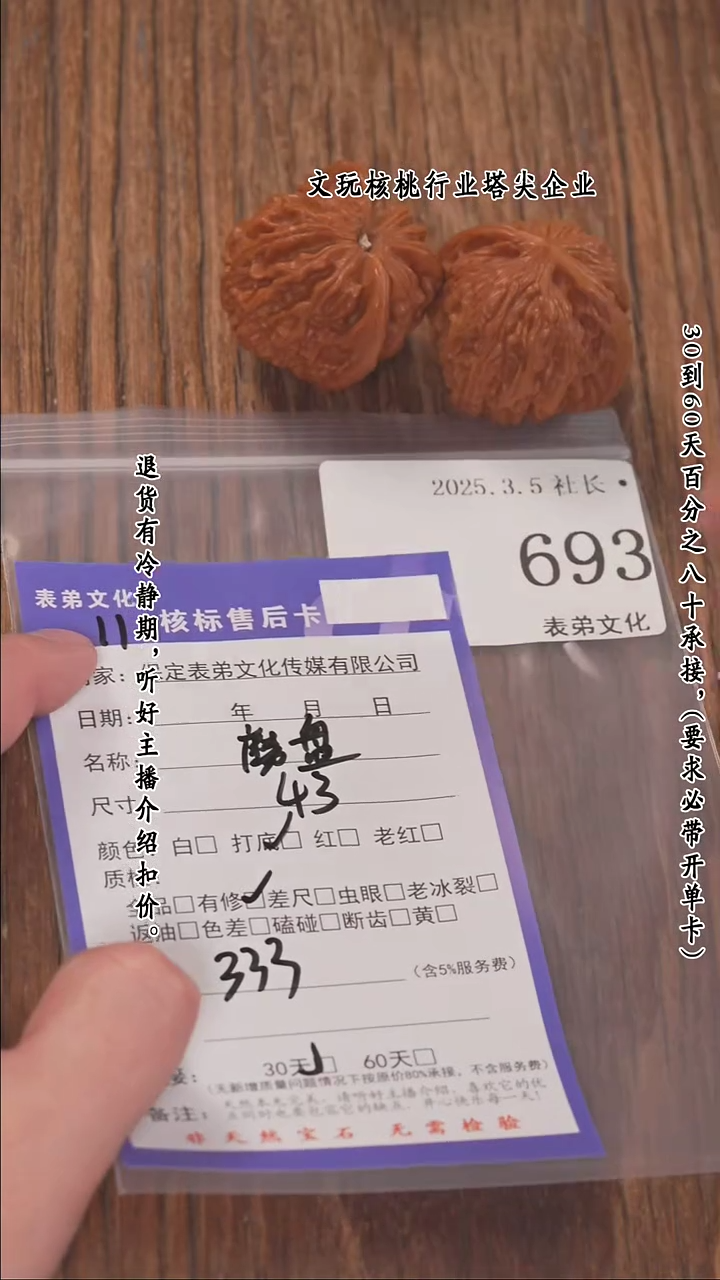 文玩核桃行业塔尖企业
30到60天百分之八十承接，（要求必带开单卡）
退货有冷静期，听好主播介绍扣价。
2025.3.5 社长
693
表弟文化
表弟文化
核标售后卡
11
家：保定表弟文化传媒有限公司
日期： 年 月 日
名称 磨盘
尺寸 43
颜色 白□ 打底□ 红□ 老红□
质
全品□有修□差尺□虫眼□老冰裂□
返油□色差□磕碰□断齿□黄□
333 （含5%服务费）
30天□ 60天□
（无新增质量问题情况下按原价80%承接，不含服务费）
备注： 天然本无完美，请听好主播介绍，喜欢它的优
点同时也要包容它的缺点，开心快乐每一天！
非天然宝石 无需检验